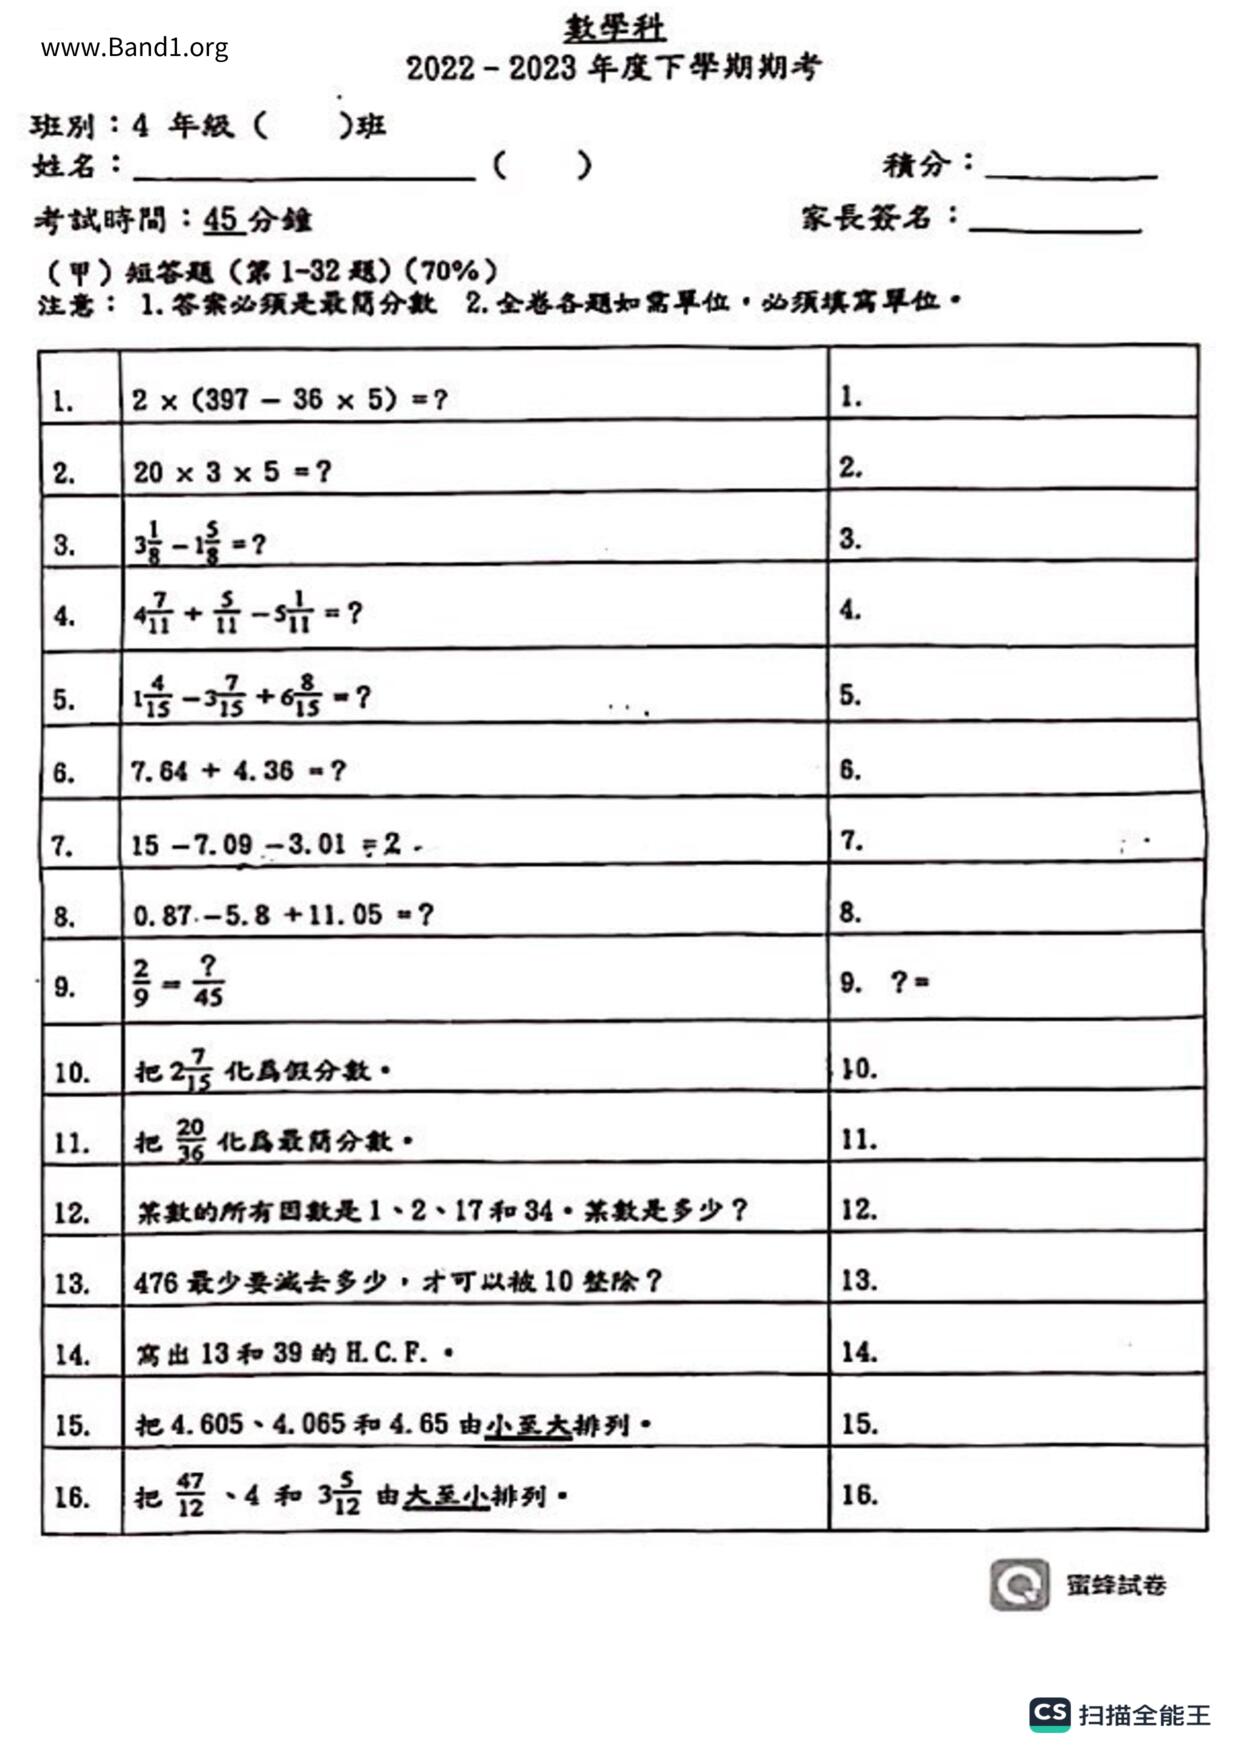 數學科
www.Band1.org
2022 - 2023 年度下學期期考
班別：4 年級 (　　)班
姓名：____________________ (　　)　　積分：__________
考試時間：45 分鐘　　家長簽名：__________
(甲) 短答題 (第 1-32 題) (70%)
注意： 1. 答案必須是最簡分數　2. 全卷各題如需單位，必須填寫單位。
1.　2 × (397 − 36 × 5) = ?　1.
2.　20 × 3 × 5 = ?　2.
3.　3 1/8 − 1 5/8 = ?　3.
4.　4 7/11 + 5/11 − 5 1/11 = ?　4.
5.　1 4/15 − 3 7/15 + 6 8/15 = ?　5.
6.　7.64 + 4.36 = ?　6.
7.　15 − 7.09 − 3.01 = ?　7.
8.　0.87 − 5.8 + 11.05 = ?　8.
9.　2/9 = ?/45　9. ? =
10.　把 2 7/15 化為假分數。　10.
11.　把 20/36 化為最簡分數。　11.
12.　某數的所有因數是 1、2、17 和 34。某數是多少？　12.
13.　476 最少要減去多少，才可以被 10 整除？　13.
14.　寫出 13 和 39 的 H.C.F.。　14.
15.　把 4.605、4.065 和 4.65 由小至大排列。　15.
16.　把 47/12 、4 和 3 5/12 由大至小排列。　16.
蜜蜂試卷
CS 扫描全能王